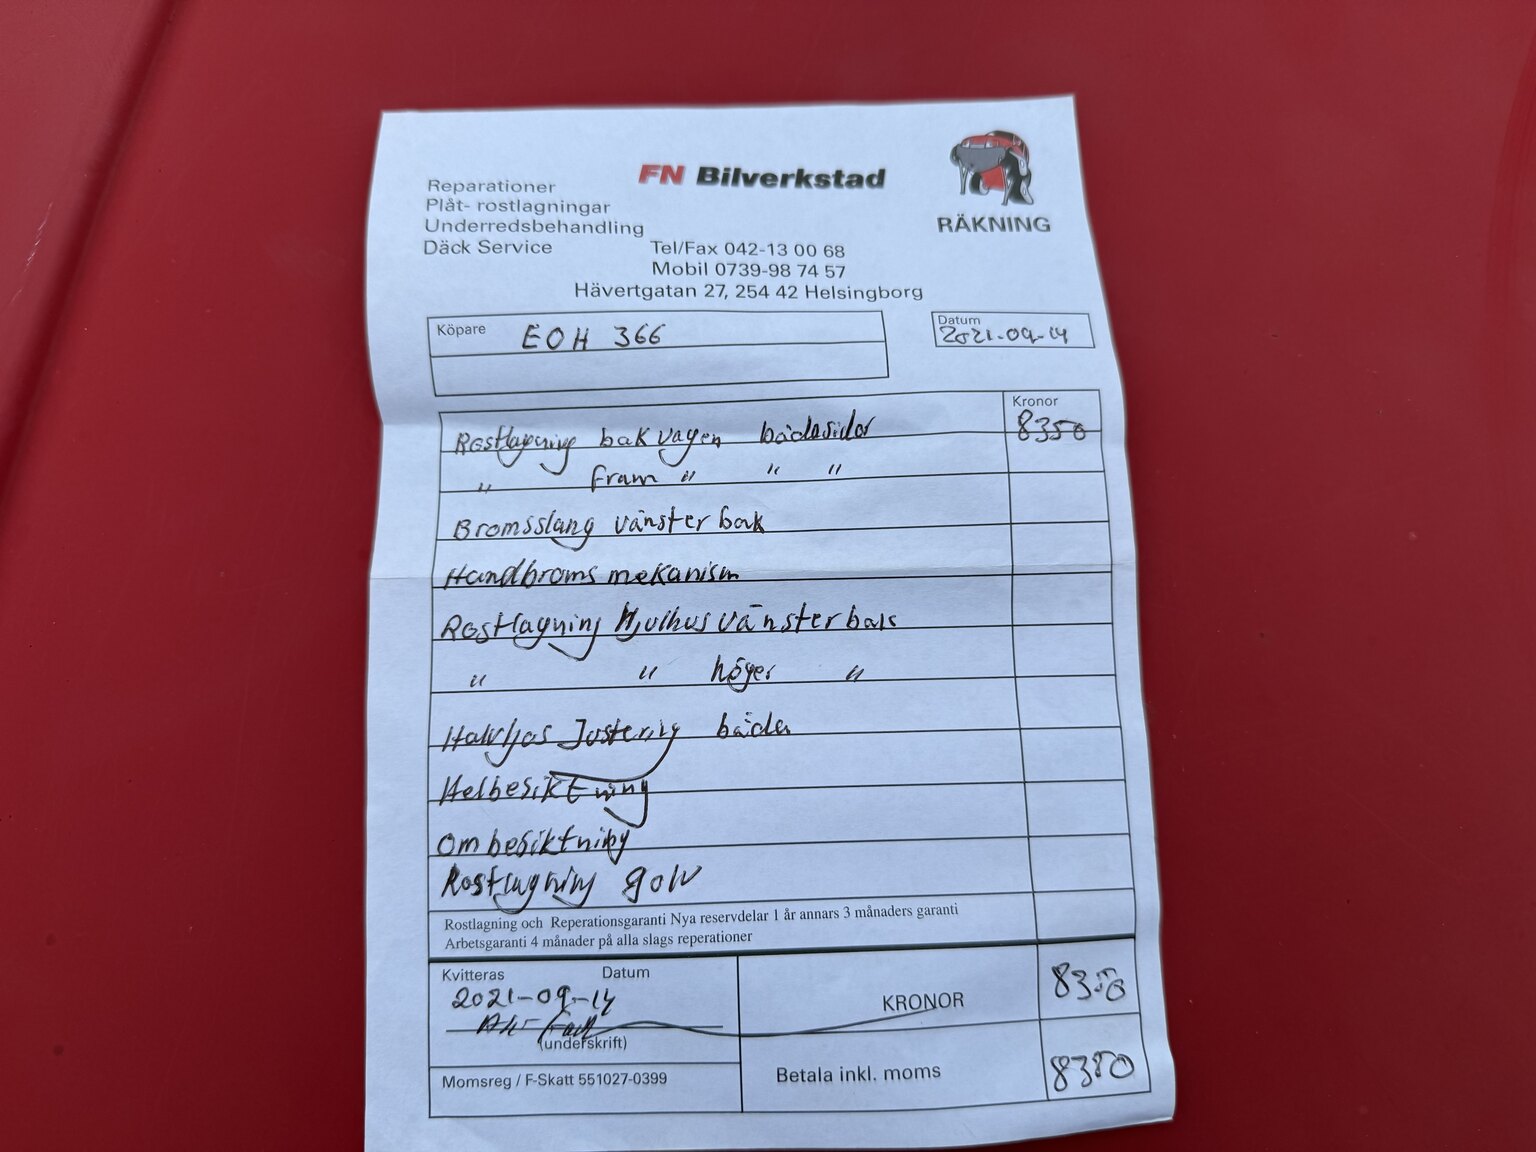 FN Bilverkstad
RÄKNING
Reparationer
Plåt- rostlagningar
Underredsbehandling
Däck Service
Tel/Fax 042-13 00 68
Mobil 0739-98 74 57
Hävertgatan 27, 254 42 Helsingborg
Köpare EOH 366
Datum 2021-09-14
Kronor
Rostlagning bak vagen bådasidor 8350
" fram " " "
Bromsslang vänster bak
Handbroms mekanism
Rostlagning Hjulhus vänster bak
" " höger "
Halvljos Jostering båda
Helbesiktning
Ombesiktning
Rostlagning golv
Rostlagning och Reperationsgaranti Nya reservdelar 1 år annars 3 månaders garanti
Arbetsgaranti 4 månader på alla slags reperationer
Kvitteras Datum
2021-09-14
(underskrift)
KRONOR 8350
Momsreg / F-Skatt 551027-0399
Betala inkl. moms 8350